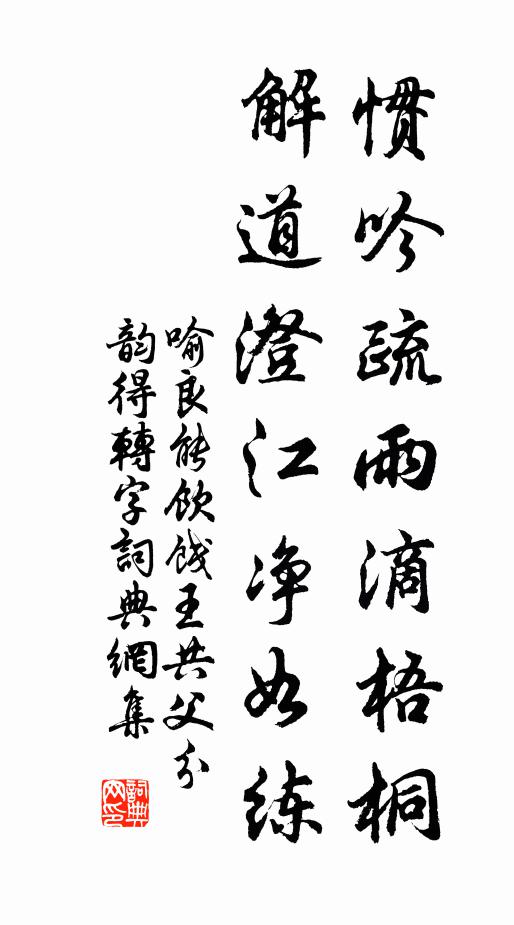 惯吟疏雨滴梧桐
解道澄江净如练
喻良能饮饯王共父分
韵得轉字詞典網集
詞典
网印